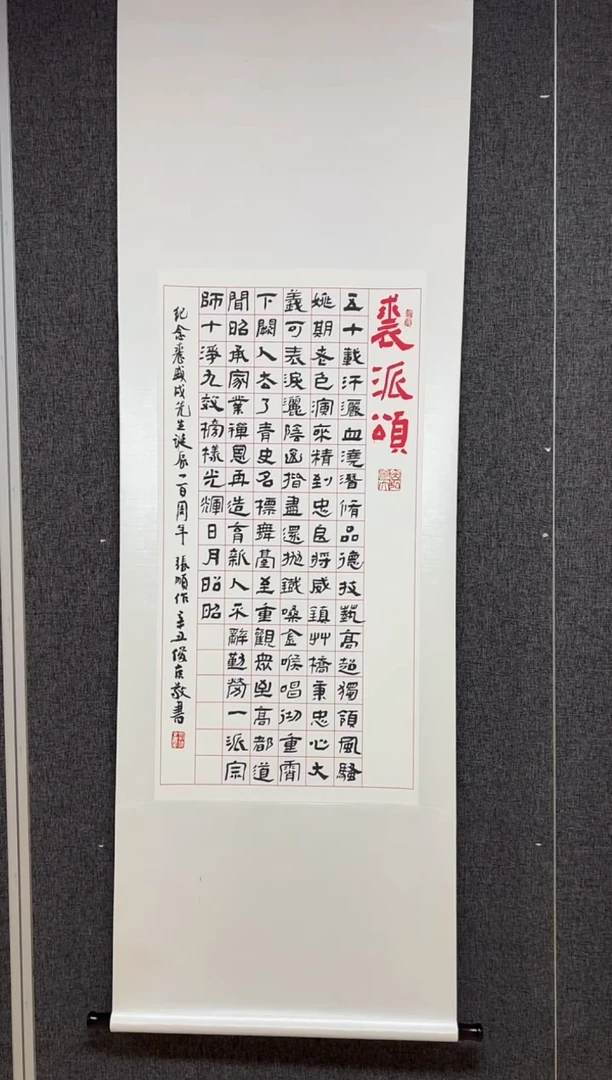 裘派頌
五十載汗灑血澆潛脩品德技藝高超獨領風騷
姚期老色演來精到忠良將威鎮艸橋秉忠心大
義可表淚灑陰揩盡還拋鐵嗓金喉唱彻重霄
下闕人去了青史名標舞臺至重觀眾高都道
昭承家業禪恩再造育新人不辭勤勞一派宗
師十淨九效榜樣光輝日月昭昭
紀念裘盛戎先生誕辰一百周年 張順作 辛丑俊敬書